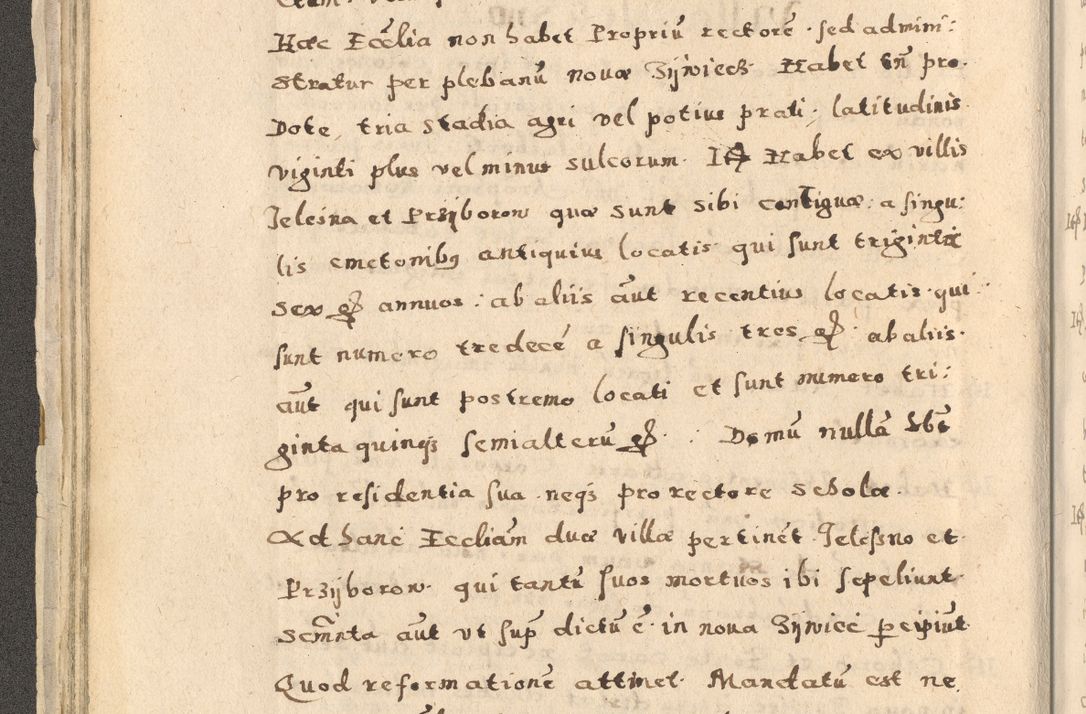 Hæc Ecclia non habet Propriũ rectorẽ. sed admini:
stratur per plebanũ nouæ Zÿwiecz. Habet tñ pro
Dote, tria stadia agri vel potius prati, latitudinis
viginti plus vel minus sulcorum. It Habet ex villis
Jelesna et Przÿborow quæ sunt sibi contiguæ. a singu:
lis cmetonibꝫ antiquius locatis qui sunt triginta
sex gr annuos: ab aliis aũt recentius locatis qui
sunt numero tredecẽ a singulis tres gr. ab aliis
aũt qui sunt postremo locati et sunt numero tri:
ginta quinqꝫ semialterũ gr. Domũ nullã hẽt
pro residentia sua neqꝫ pro rectore scholæ.
Ad hanc Eccliam duæ villæ pertinẽt Jelessno et
Przÿborow qui tantũ suos mortuos ibi sepeliunt.
Scrãnta aũt vt sup̃ dictũ ẽ in noua Zÿwiec p̱cipiũt
Quod reformationẽ attinet. Mandatũ est ne